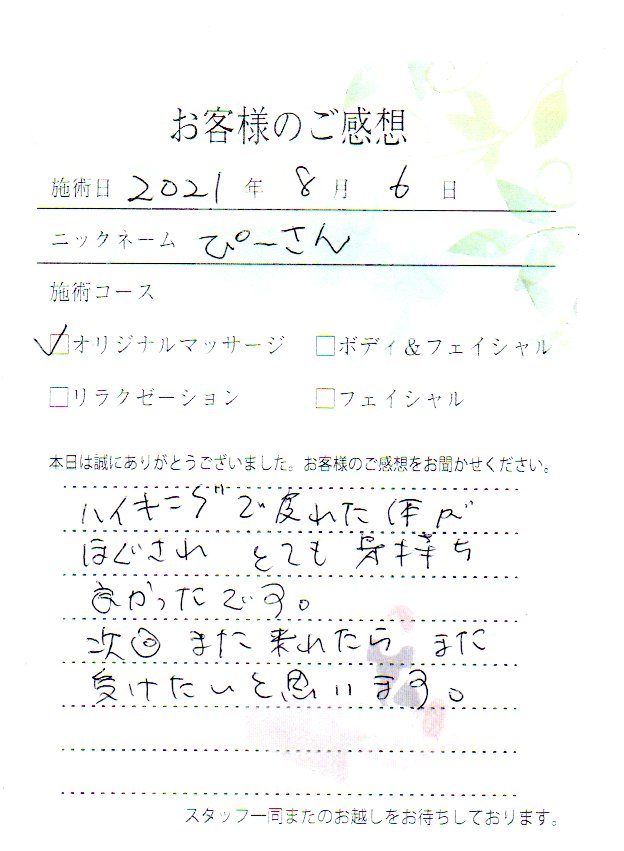 お客様のご感想
施術日 2021 年 8 月 6 日
ニックネーム ぴーさん
施術コース
✓□オリジナルマッサージ □ボディ&フェイシャル
□リラクゼーション □フェイシャル
本日は誠にありがとうございました。お客様のご感想をお聞かせください。
ハイキングで疲れた体が
ほぐされ とても気持ち
良かったです。
次回 また来れたら また
受けたいと思います。
スタッフ一同またのお越しをお待ちしております。